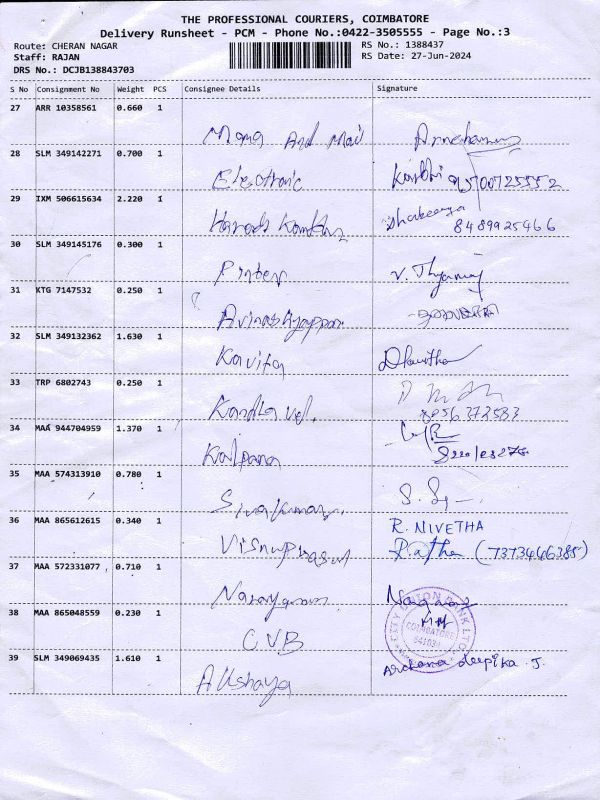 THE PROFESSIONAL COURIERS, COIMBATORE
Delivery Runsheet - PCM - Phone No.:0422-3505555 - Page No.:3
Route: CHERAN NAGAR
RS No.: 1388437
Staff: RAJAN
RS Date: 27-Jun-2024
DRS No.: DCJB138843703
S No Consignment No Weight PCS Consignee Details Signature
27 ARR 10358561 0.660 1
Mona And Mail
28 SLM 349142271 0.700 1
Electronic 9500725552
29 IXM 506615634 2.220 1
8489925466
30 SLM 349145176 0.300 1
Printer V.
31 KTG 7147532 0.250 1
32 SLM 349132362 1.630 1
Kavita
33 TRP 6802743 0.250 1
Kandha vel. 8056372583
34 MAA 944704959 1.370 1
Kalpana
35 MAA 574313910 0.780 1
Sivakumar
36 MAA 865612615 0.340 1
R. NIVETHA
(7373466385)
37 MAA 572331077 0.710 1
38 MAA 865048559 0.230 1
CITY UNION BANK LTD
COIMBATORE
CVB
39 SLM 349069435 1.610 1
Akshaya Archana deepika. J.